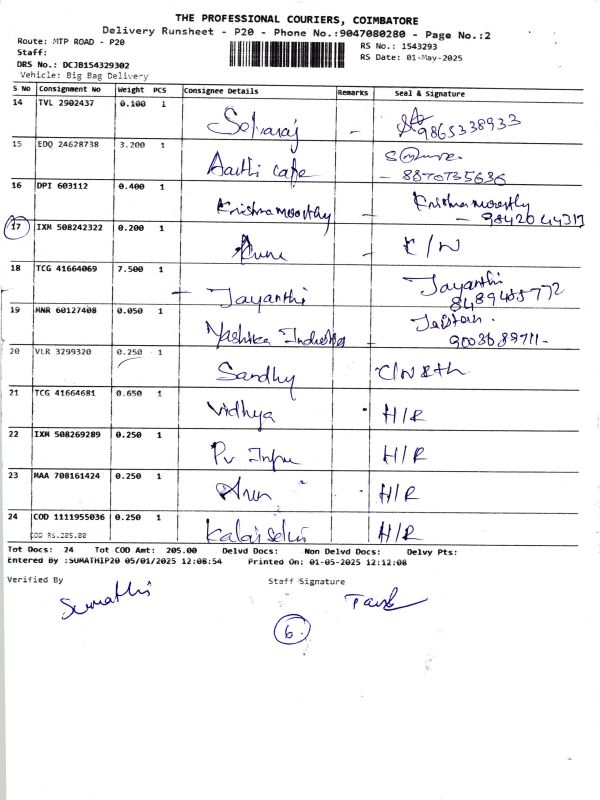 THE PROFESSIONAL COURIERS, COIMBATORE
Delivery Runsheet - P20 - Phone No.:9047080280 - Page No.:2
Route: MTP ROAD - P20
RS No.: 1543293
Staff:
RS Date: 01-May-2025
DRS No.: DCJB154329302
Vehicle: Big Bag Delivery
S No Consignment No Weight PCS Consignee Details Remarks Seal & Signature
14 TVL 2902437 0.100 1 Selvaraj - 9865338933
15 EDQ 24628738 3.200 1 Aarthi cafe - 8870735636
16 DPI 603112 0.400 1 Krishnamoorthy - Krishnamoorthy
- 9842044317
17 IXM 508242322 0.200 1 - C/N
18 TCG 41664069 7.500 1 - Jayanthi Jayanthi
8489485772
19 MNR 60127408 0.050 1 Yashika -
9003689711-
20 VLR 3299320 0.250 1 Sandhy
21 TCG 41664681 0.650 1 Vidhya H/R
22 IXM 508269289 0.250 1 Pv H/R
23 MAA 708161424 0.250 1 Arun H/R
24 COD 1111955036 0.250 1 Kalaiselvi H/R
COD Rs.205.00
Tot Docs: 24 Tot COD Amt: 205.00 Delvd Docs: Non Delvd Docs: Delvy Pts:
Entered By :SUMATHIP20 05/01/2025 12:08:54 Printed On: 01-05-2025 12:12:08
Verified By Staff Signature
Sumathi
6